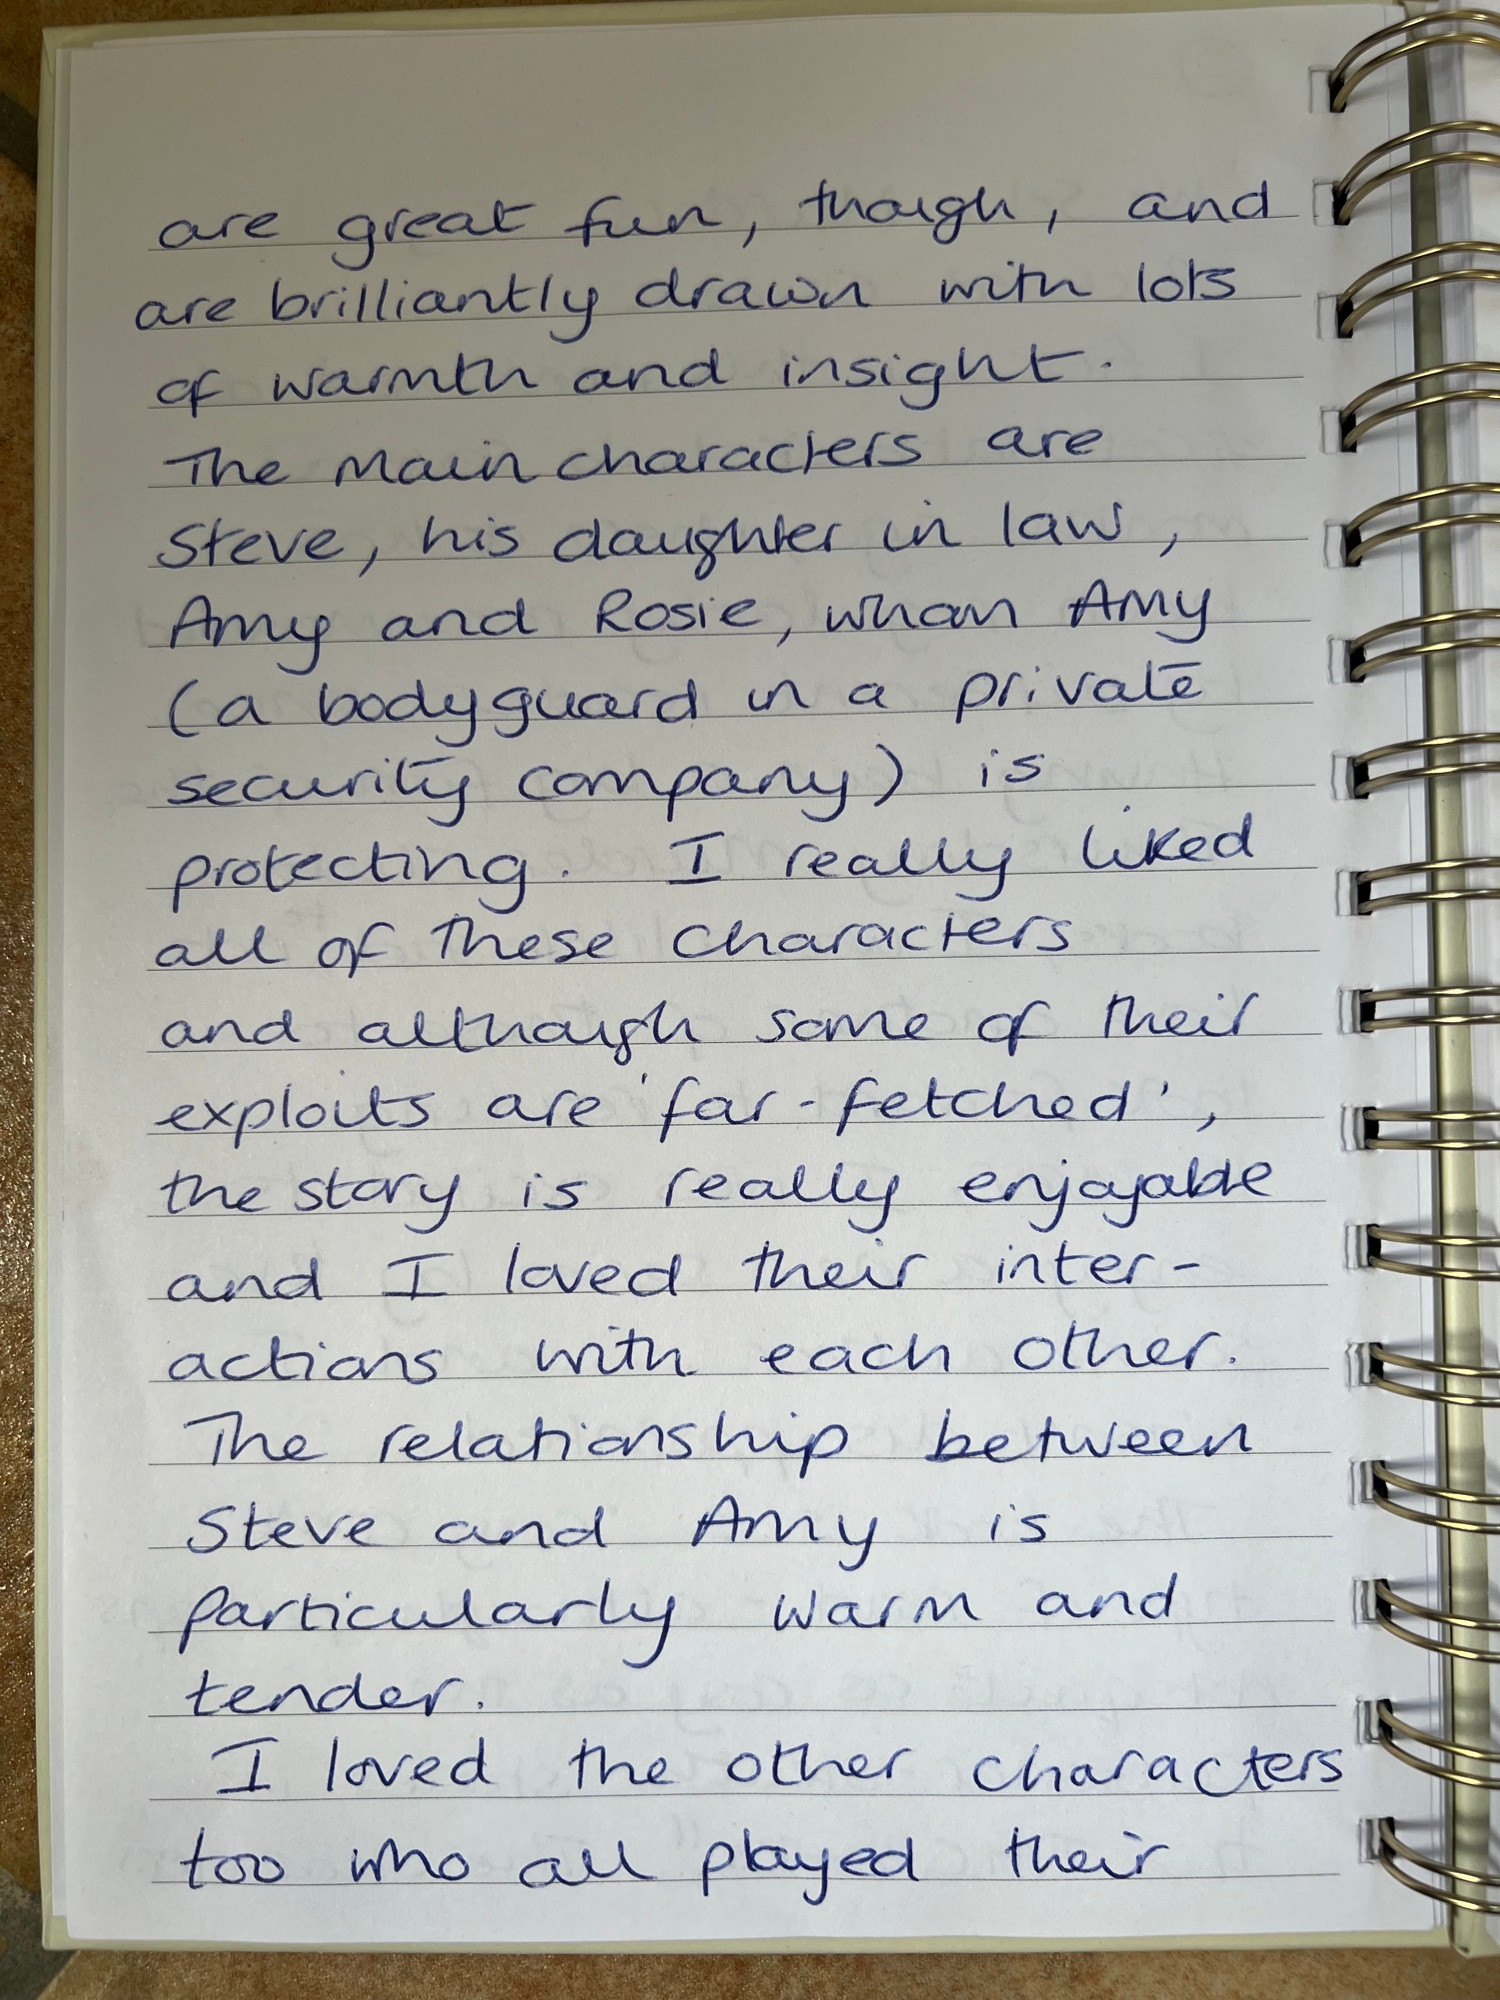 are great fun, though, and
are brilliantly drawn with lots
of warmth and insight.
The main characters are
Steve, his daughter in law,
Amy and Rosie, whom Amy
(a bodyguard in a private
security company) is
protecting. I really liked
all of these characters
and although some of their
exploits are 'far-fetched',
the story is really enjoyable
and I loved their inter-
actions with each other.
The relationship between
Steve and Amy is
particularly warm and
tender.
I loved the other characters
too who all played their